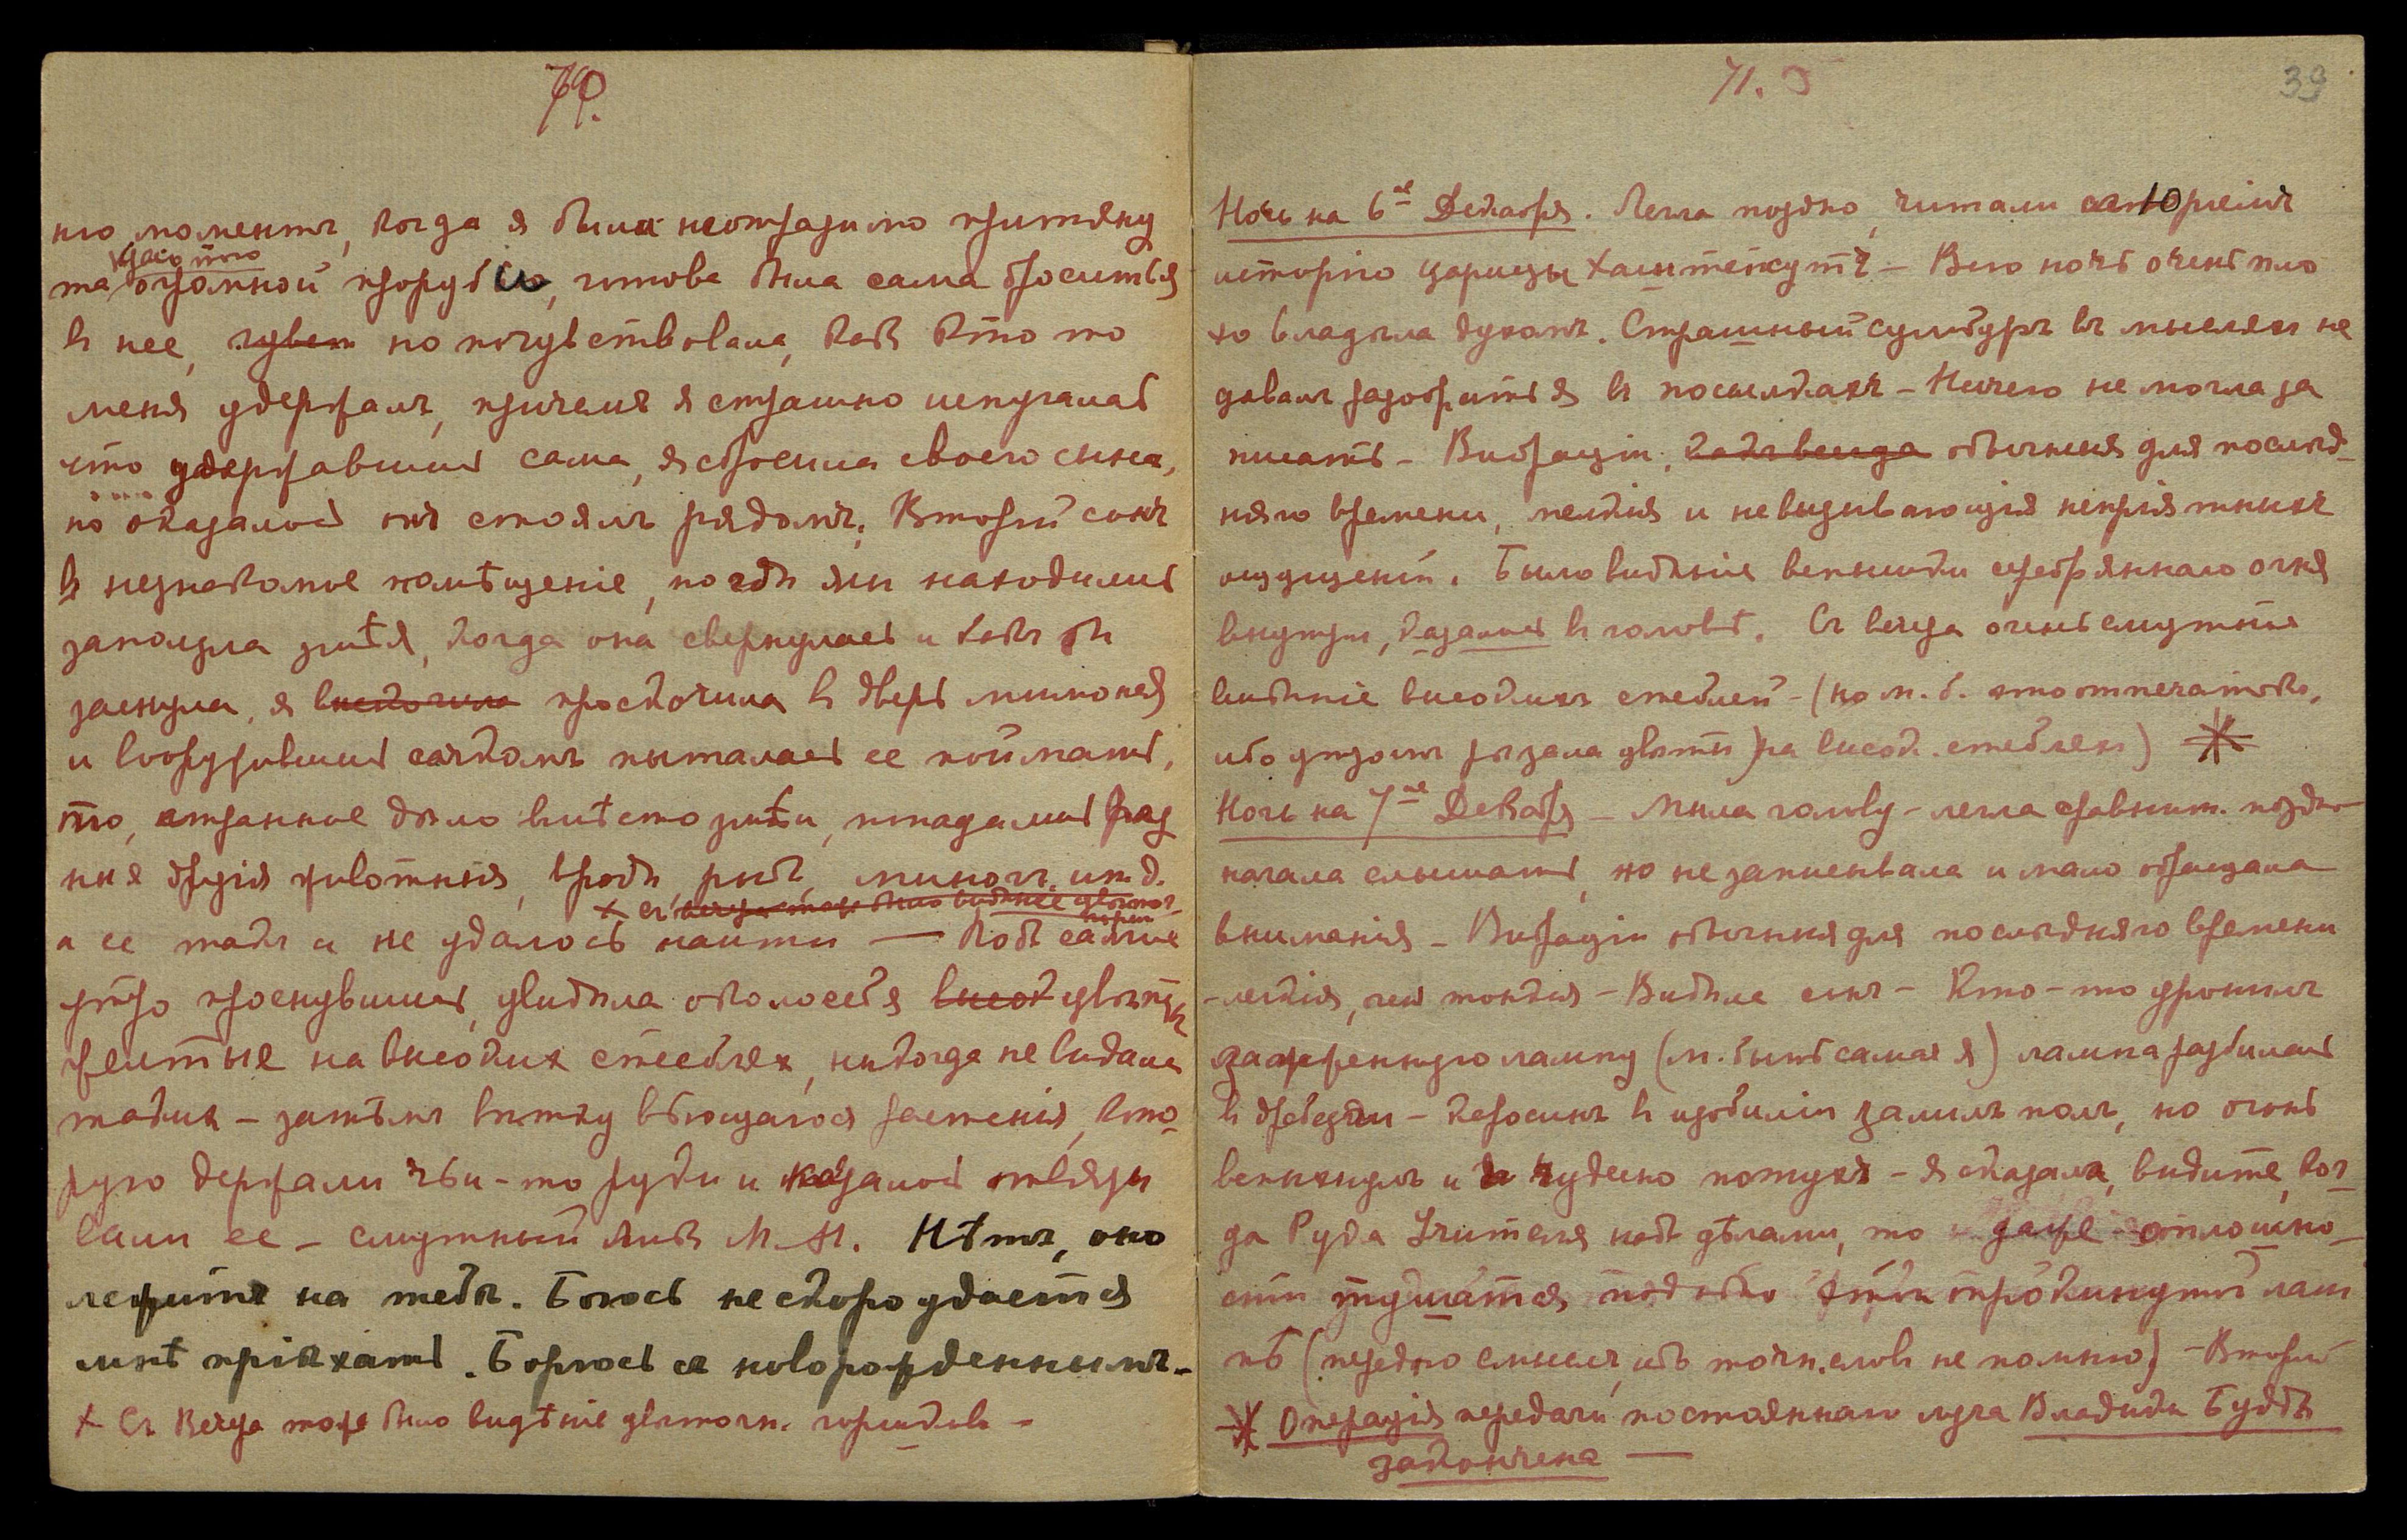 70.
но, моментъ, когда я была неотразимо притяну
та огромной прорубью, готова была сама броситься
в нее, но почувствовала, какъ кто то
меня удержалъ, причемъ я страшно испугалась
что удержавшись сама, я сбросила своего сына,
но оказалось онъ стоялъ рядомъ. Второй сонъ
в незнакомое помѣщеніе, но гдѣ мы находились
заползла змѣя, когда она свернулась и какъ бы
заснула, я вскочила проскочила в дверь мимо нея
и вооружившись сачкомъ пыталась ее поймать,
но, странное дѣло вмѣсто змѣи, попадались раз
ныя другія животныя, вродѣ рыбъ, миногъ. и т.д.
× съ вечера тоже было видѣніе цвѣточ.
а ее такъ и не удалось найти — Подъ самое
утро проснувшись, увидѣла около себя высок цвѣты
желтые на высоких стеблях, никогда не видала
таких – затѣмъ вѣтку вьющагося растенія, кото
рую держали чьи-то руки и казалось отвязы
вали ее – смутный ликъ М.М. Нѣтъ, оно
лежитъ на тебѣ. Боюсь не скоро удастся
мнѣ пріѣхать. Борюсь съ новорожденнымъ –
× Съ Вечера тоже было видѣніе цвѣточн. горшковъ –
71.
39
Ночь на 6ое Декабря. Легла поздно, читали с Юріемъ
исторію царицы Хаштепсутъ – Всю ночь очень пло
хо владѣла духомъ. Страшный сумбуръ въ мысляхъ не
давалъ разобраться въ посылкахъ – Ничего не могла за
писать – Вибраціи, какъ всегда обычныя для послѣд-
няго времени, мелкія и не вызывающія непріятныхъ
ощущеній. Было видѣніе вспышки серебряннаго огня
внутри, казалось в головѣ. Съ вечера очень смутное
видѣніе высокихъ стеблей – (но м. б. это отпечатокъ,
ибо утромъ рѣзала цвѣты на высок. стебляхъ) ⁎
Ночь на 7ое Декабря – Мыла голову – легла сравнит. поздно
начала слышать, но не записывала и мало обращала
вниманія – Вибраціи обычныя для послѣдняго времени
– легкія, тонкія – Видѣла сонъ – Кто-то уронилъ
зажженную лампу (м. быть самая я) лампа разбилась
в дребезги – керосинъ в изобиліи залилъ полъ, но огонь
вспыхнулъ и чудесно потухъ – я сказала, видите, ког-
да Рука Учителя надъ дѣлами, то и даже оплошно-
сти тушатся подобно этой опрокинутой лам
пѣ (передаю смыслъ, ибо точн. словъ не помню) – Второй
⁎ Операція передачи постояннаго луча Владыки Будды
закончена —